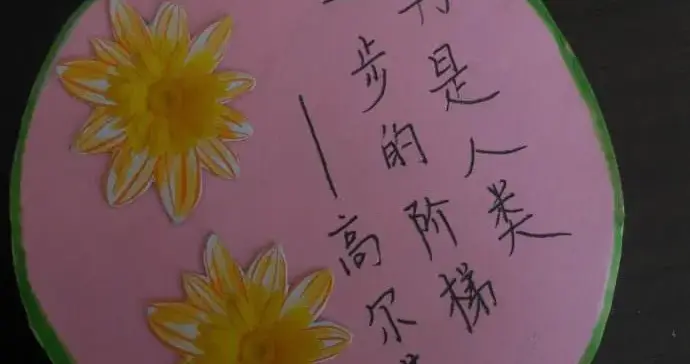 是人类
步的阶梯
——高尔